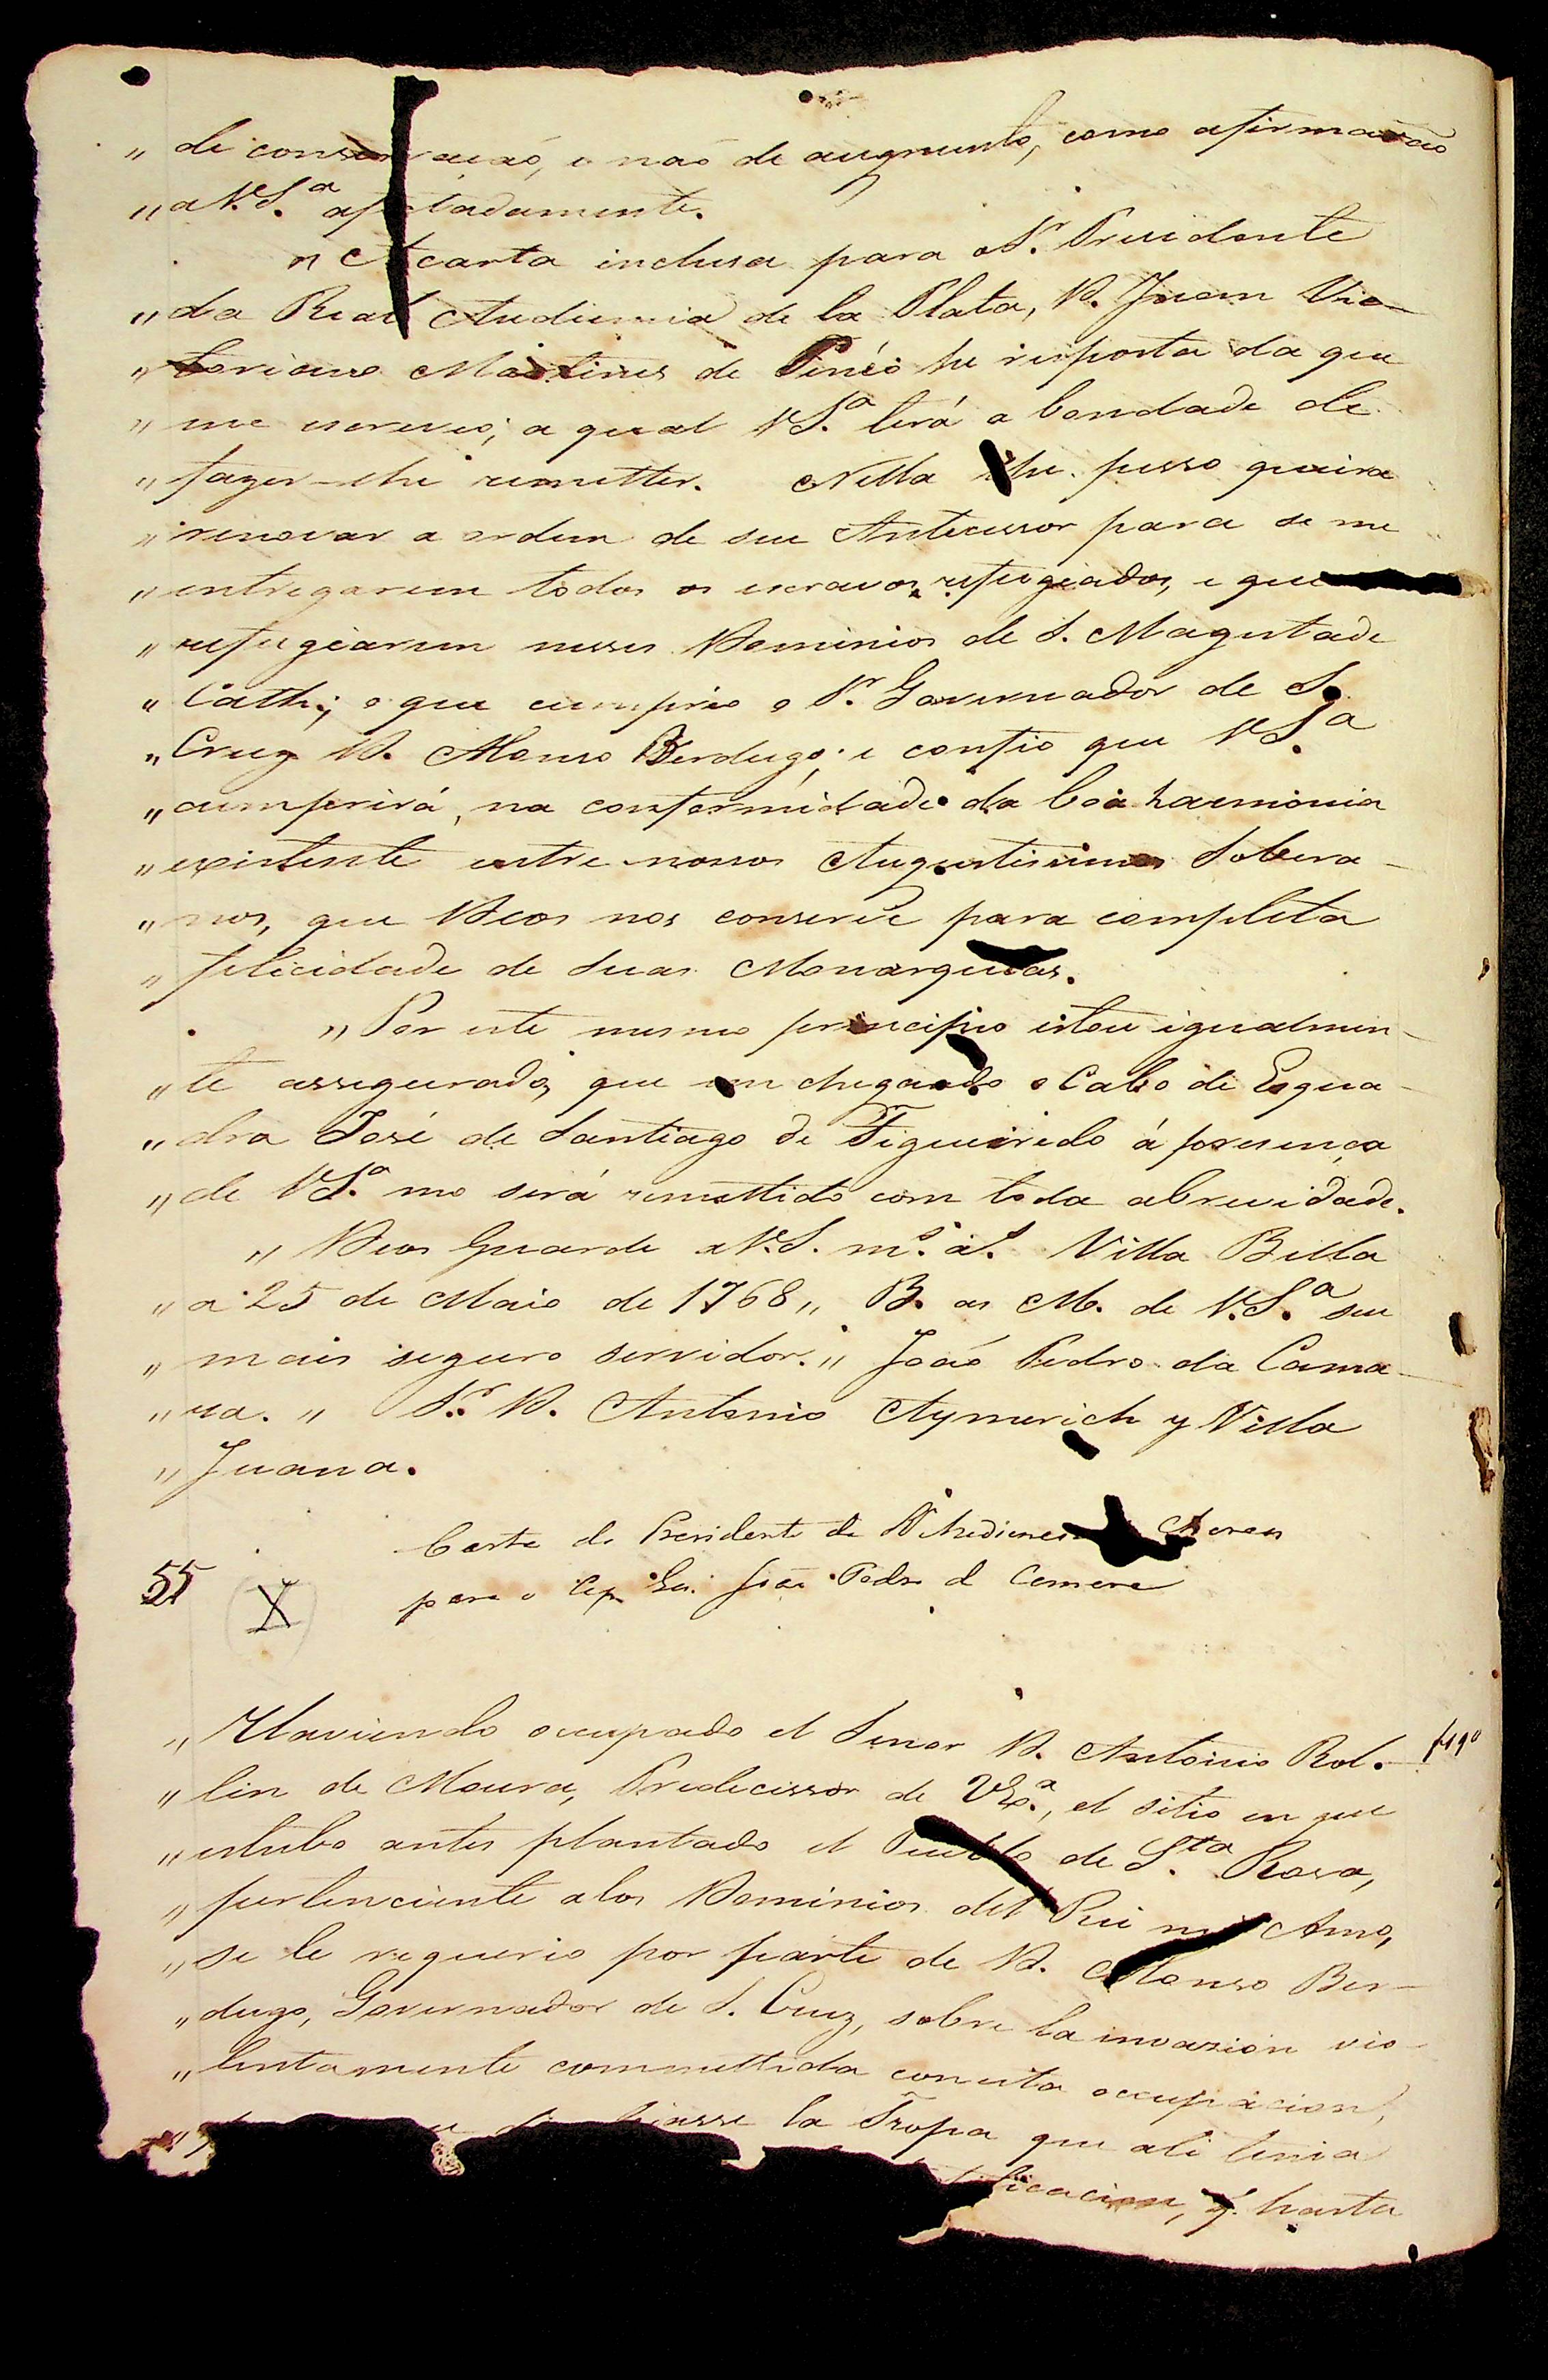 „ de conservaçaó, e naó de augmento, como afirmaraó
„ a V. S.ª afectadamente.
„ A carta inclusa para o S.r Prezidente
„ da Real Audiencia de la Plata, D. Juan Vic-
„ toriano Martines de Tinéo he resposta da que
„ me escreveo; a qual V S.ª terá a bondade de
„ fazer-lhe remetter. Nella lhe pesso queira
„ renovar a ordem de seu Antecessor para se me
„ entregarem todos os escravos refugiados, e que
„ refugiarem nesses Dominios de S. Magestade
„ Cath.; o que cumprio o S.r Governador de S.
„ Cruz D. Alonso Berdugo; e confio que V S.ª
„ cumprirá, na conformidade da boa harmonia
„ existente entre nossos Augustissimos Sobera-
„ nos, que Deos nos conserve para completa
„ felicidade de suas Monarquias.
„ Por este mesmo principio estou igualmen-
„ te assegurado, que em chegando o Cabo de Esqua-
„ dra José de Santiago de Figueiredo á presença
„ de V S.ª me será remettido com toda abrevidade.
„ Deos Guarde a V. S. m.s a.s Villa Bella
„ a 25 de Maio de 1768 „ B. as M. de V. S.ª seu
„ mais seguro servidor. „ Joaó Pedro da Cama-
„ ra. „ S.r D. Antonio Aymerich y Villa
„ Juana.
Carta do Presidente da Audiencia de Charcas
para o Cap. Gen. João Pedro da Camara
55 X
„ Haviendo occupado el Senor D. Antonio Rol-
„ lin de Moura, Predecissor de V Ex.ª, el sitio en que
„ estubo antes plantado el Pueblo de S.ta Rosa,
„ pertenciente a los Dominios del Rei mi Amo,
„ se le requerio por parte de D. Alonso Ber-
„ dugo, Governador de S. Cruz, sobre la invazión vio-
„ lentamente committida con esta occupacion,
la Tropa que ali tenia
hasta